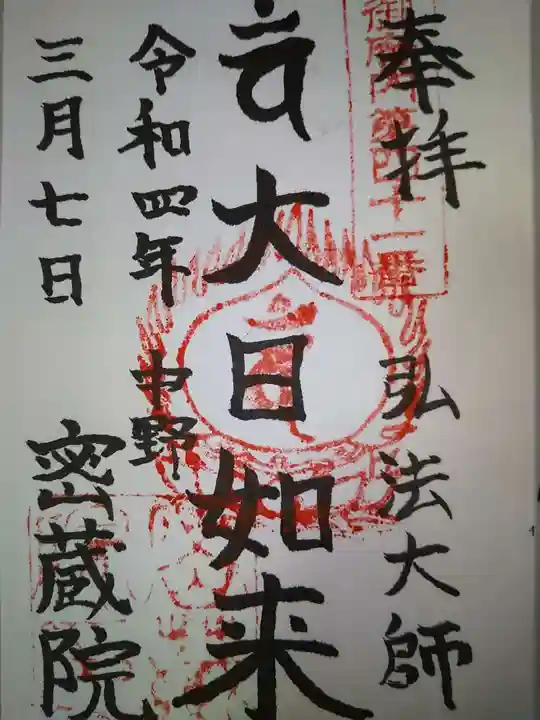 奉拝
弘法大師
御府内第四十一番
大日如来
令和四年
中野
三月七日
密蔵院